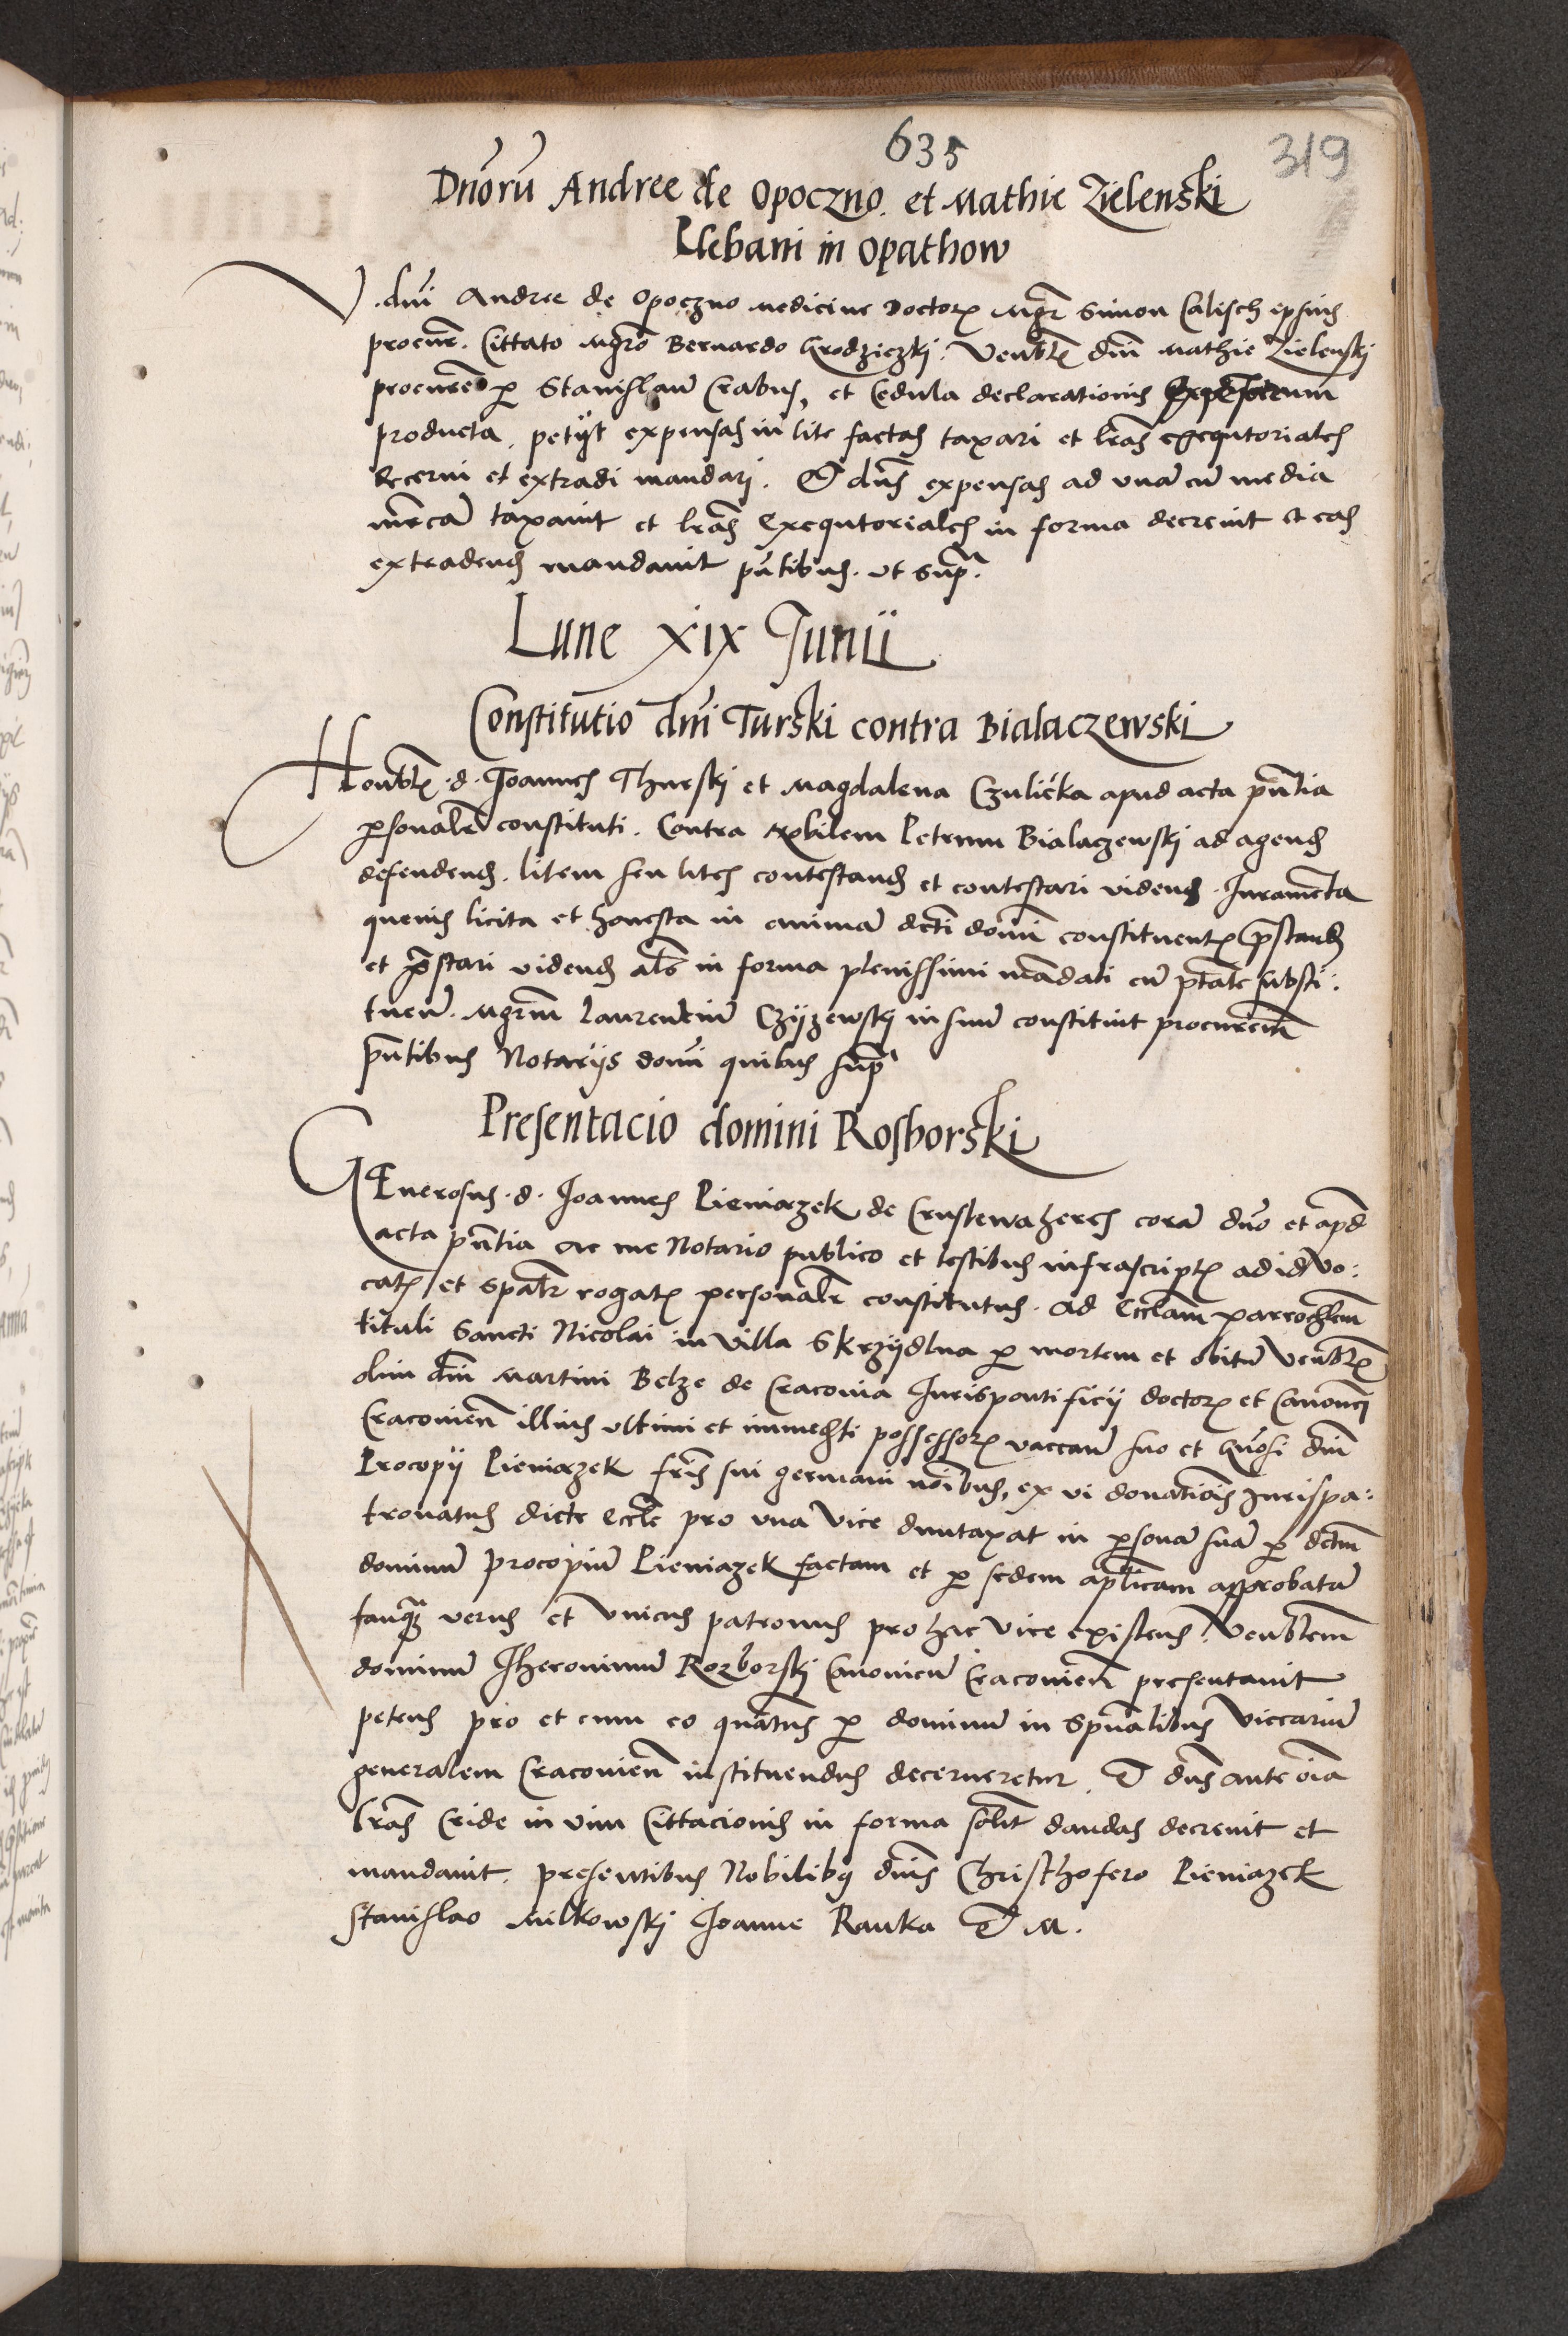 635
319
Dnoru Andree de Opoczno et Mathie Zielenski
Plebani in Opathow
V. dni Andree de Opoczno medicine doctor mgr Simon Calisch ipsius
procur. Cittato Mgro Bernardo Grodziczkj Venbl dni Mathie Zielenskj
procure p Stanislau Crabus, et Cedula declarationis Expensarum
producta, petijt expensas in lite factas taxari et lras exequtoriales
decerni et extradi mandarj. Et dns expensas ad una cu media
mrca taxavit et lras Exequtoriales in forma decrevit et eas
extradend mandavit pntibus. ut sup.
Lune xix Junii
Constitutio dni Turski contra Bialaczewski
Honobl. d. Joannes Thurskj et Magdalena Czulicka apud acta pntia
psonalr constituti. Contra Nobilem Petrum Bialaczewskj ad agend
defendend. litem seu lites contestand et contestari videnđ. Iuramenta
quevis licita et honesta in anima dcti domi constituent prestand
et prestari videnđ als in forma plenissimi mandati cu ptate substi:
tuen. Mgrum Laurentiu Czyzewskj in suu constituit procurem
pntibus Notarijs domi quibus sup
Presentacio domini Rosborski
GEnerosus. d. Joannes Pieniazek de Cruslewaheres cora dno et apd
acta pntia ac me Notario publico et testibus infrascript ad id vo:
cat et spalr rogat personalr constitutus. Ad Ecclam parrochlem
tituli Sancti Nicolai in Villa Skrzydlna p mortem et obitu venbl
olim dni Martini Belze de Cracovia Iurispontificij doctor et Canonci
Cracovien illius ultimi et immediti possessor vaccan suo et Gnosi dni
Procopij Pieniazek fris sui germani noibus, ex vi donationis Jurispa:
tronatus dicte eccle pro una vice duntaxat in psona sua p dctm
dominu Procopiu Pieniazek factam et p sedem aplicam approbata
tanq verus et Unicus patronus pro hac vice existens. Venblem
dominu Jheronimu Rozborskj Canonicu Cracovien presentavit
petens pro et cum eo quatnus p dominu in Spualibus Viccariu
generalem Cracovien instituendus decerneretur. Et dns ante oia
lras Cride in vim Cittacionis in forma solit dandas decrevit et
mandavit. presentibus Nobilibq dnis Christhofero Pieniazek
Stanislao Milkowskj Joanne Ranka Et M.